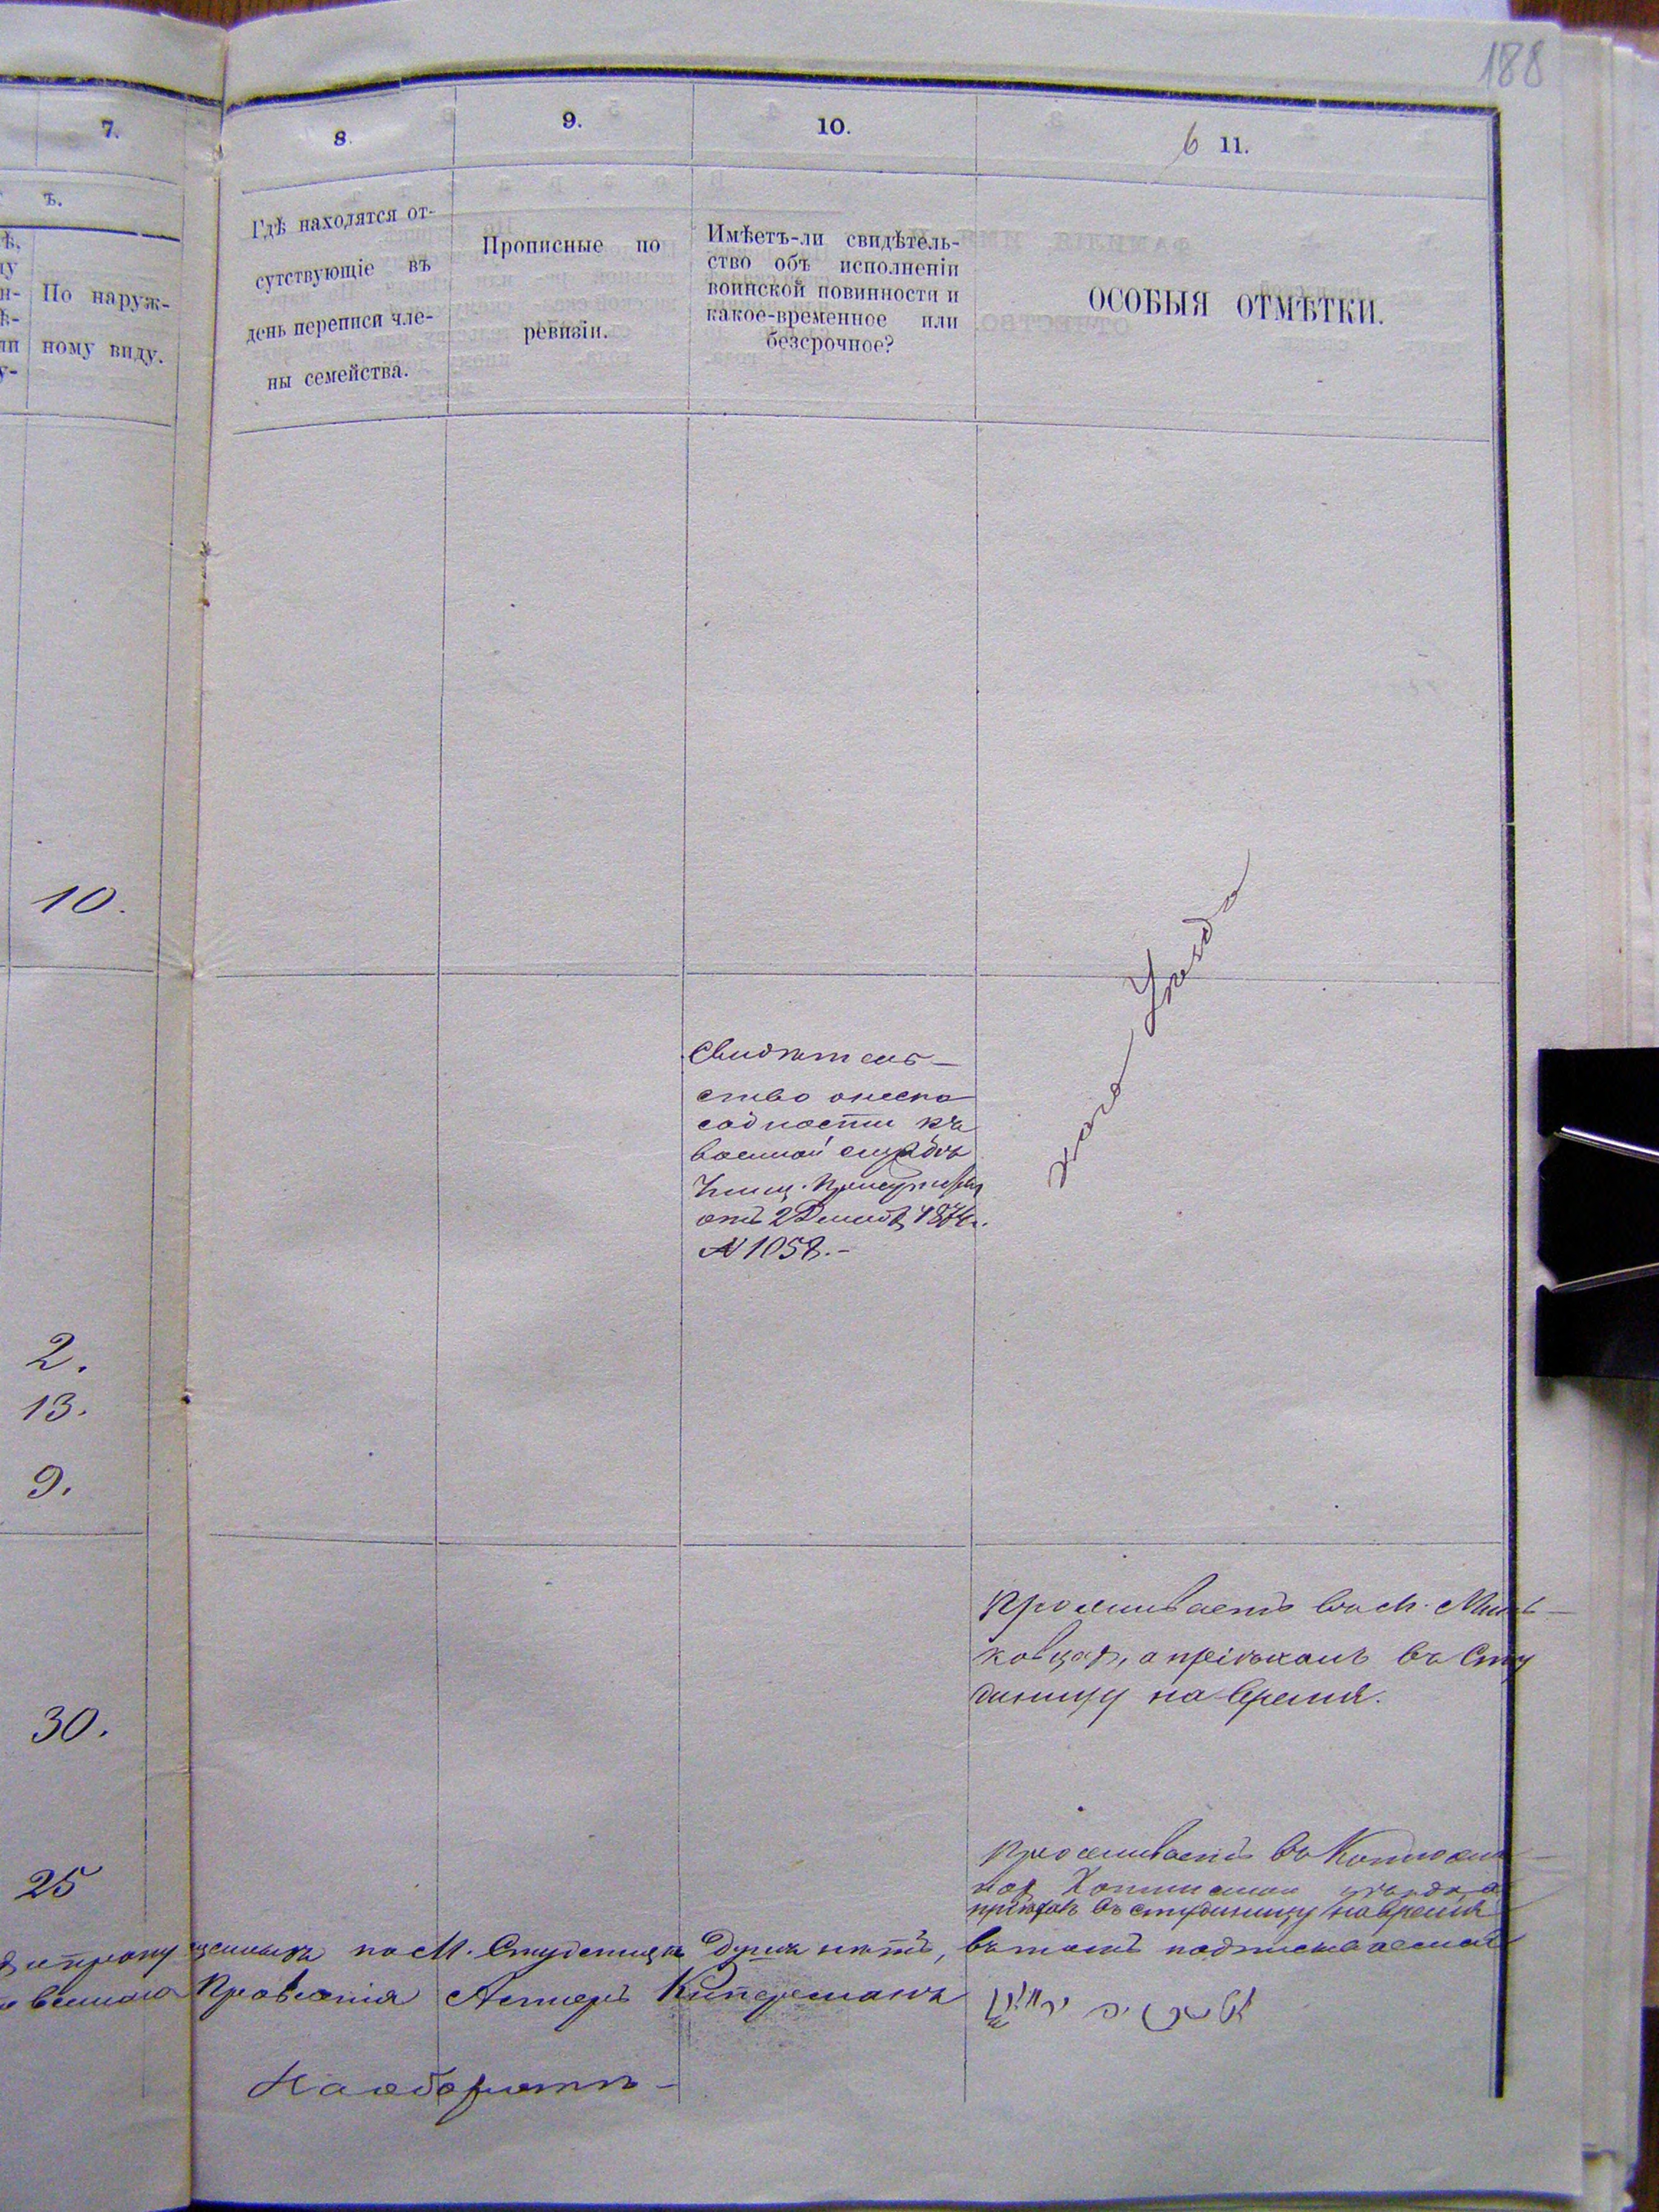 188
7.
8.
9.
10.
6 11.
ъ.
По наруж-
ному виду.
Гдѣ находятся от-
сутствующіе въ
день переписи чле-
ны семейства.
Прописные по
ревизіи.
Имѣетъ-ли свидѣтель-
ство объ исполненіи
воинской повинности и
какое-временное или
безсрочное?
ОСОБЫЯ ОТМѢТКИ.
10.
каго Уѣзда
Свидѣтель-
ство онеспо
собности къ
военной службѣ
отъ 2 Декаб. 187
№ 1058.-
2.
13.
9.
Проживаетъ въ м. Минь-
ковцахъ, а пріѣхалъ въ Сту
деницу на время.
30.
Проживаетъ въ
25
уѣзда, а
пріѣхалъ въ студеницу на время
по М. Студеницѣ душъ нѣтъ, въ томъ подписываемся
Правленія Аспиръ Киперманъ
На оборотѣ-